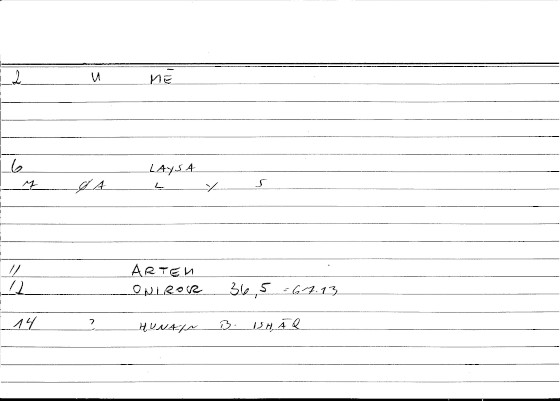 2 U MĒ
6 LAYSA
M ØA L Y S
11 ARTEM
12 ONIROCR 36,5 =67.13
14 ? HUNAYN B. ISḤĀQ